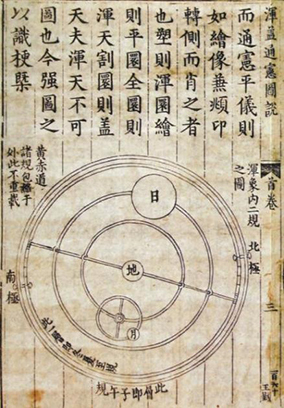 渾蓋通憲圖說
首卷
三
而通憲平儀則
如繪像兼頫印
轉側而肖之者
也塑則渾圜繪
則平圜全圜則
渾天割圜則蓋
天夫渾天不可
圖也今强圖之
以識梗槩
渾象內二規
之圖
北極
日
地
月
此層即子午規
黃赤道
諸規包
于
外此不重載
南極